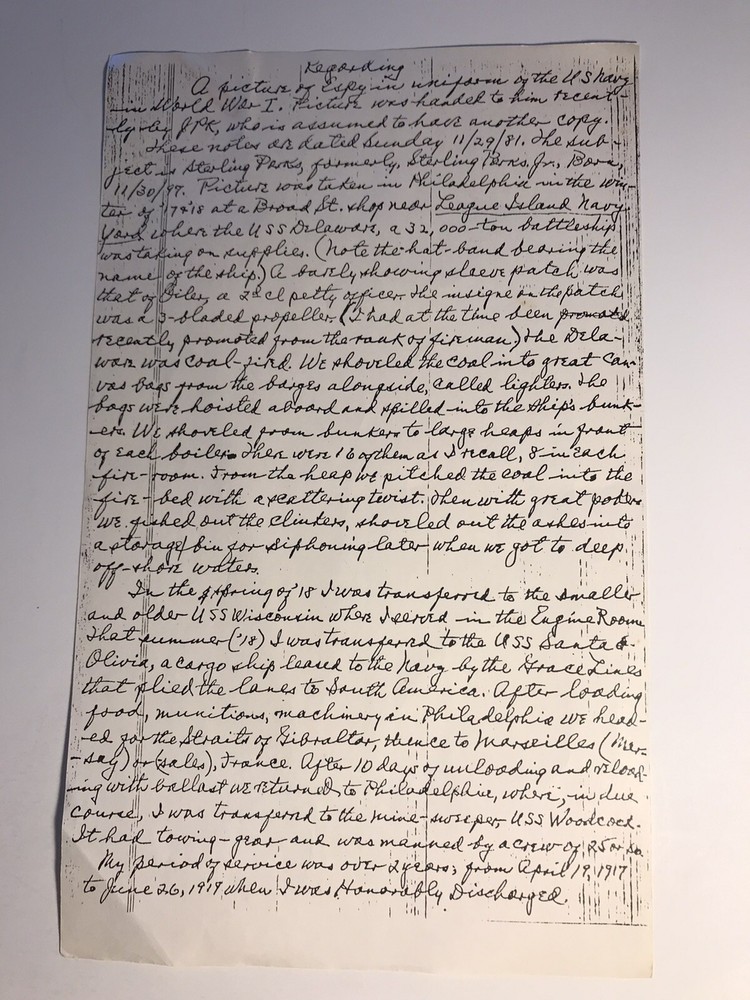 Regarding
A picture of Espy in uniform of the US Navy
in World War I. Picture was handed to him recent-
ly by JPK, who is assumed to have another copy.
These notes are dated Sunday 11/29/81. The sub-
ject is Sterling Parks, formerly, Sterling Parks, Jr., Born,
11/30/97. Picture was taken in Philadelphia in the win-
ter of '17 & '18 at a Broad St. shop near League Island Navy
Yard where the USS Delaware, a 32,000-ton battleship
was taking on supplies. (Note the hat-band bearing the
name of the ship.) A barely showing sleeve patch was
that of Oiler, a 2d cl petty officer. The insigne on the patch
was a 3-bladed propeller. (I had at the time been promoted
recently promoted from the rank of fireman.) The Dela-
ware was coal-fired. We shoveled the coal into great can-
vas bags from the barges alongside, called lighters. The
bags were hoisted aboard and spilled into the ship's bunk-
ers. We shoveled from bunkers to large heaps in front
of each boiler. There were 16 of them as I recall, 8 in each
fire-room. From the heap we pitched the coal into the
fire-bed with a scattering twist. Then with great pokers
we fished out the clinkers, shoveled out the ashes into
a storage bin for siphoning later when we got to deep
off-shore waters.
In the spring of '18 I was transferred to the smaller
and older USS Wisconsin where I served in the Engine Room
That summer ('18) I was transferred to the USS Santa
Olivia, a cargo ship leased to the Navy by the Grace Lines
that plied the lanes to South America. After loading
food, munitions, machinery in Philadelphia we head-
ed for the Straits of Gibraltar, thence to Marseilles (Mer-
say) or (sales), France. After 10 days of unloading and reload-
ing with ballast we returned to Philadelphia, where, in due
course, I was transferred to the mine-sweeper USS Woodcock.
It had towing-gear and was manned by a crew of 25 or so.
My period of service was over 2 years; from April 19, 1917
to June 26, 1919 when I was Honorably Discharged.